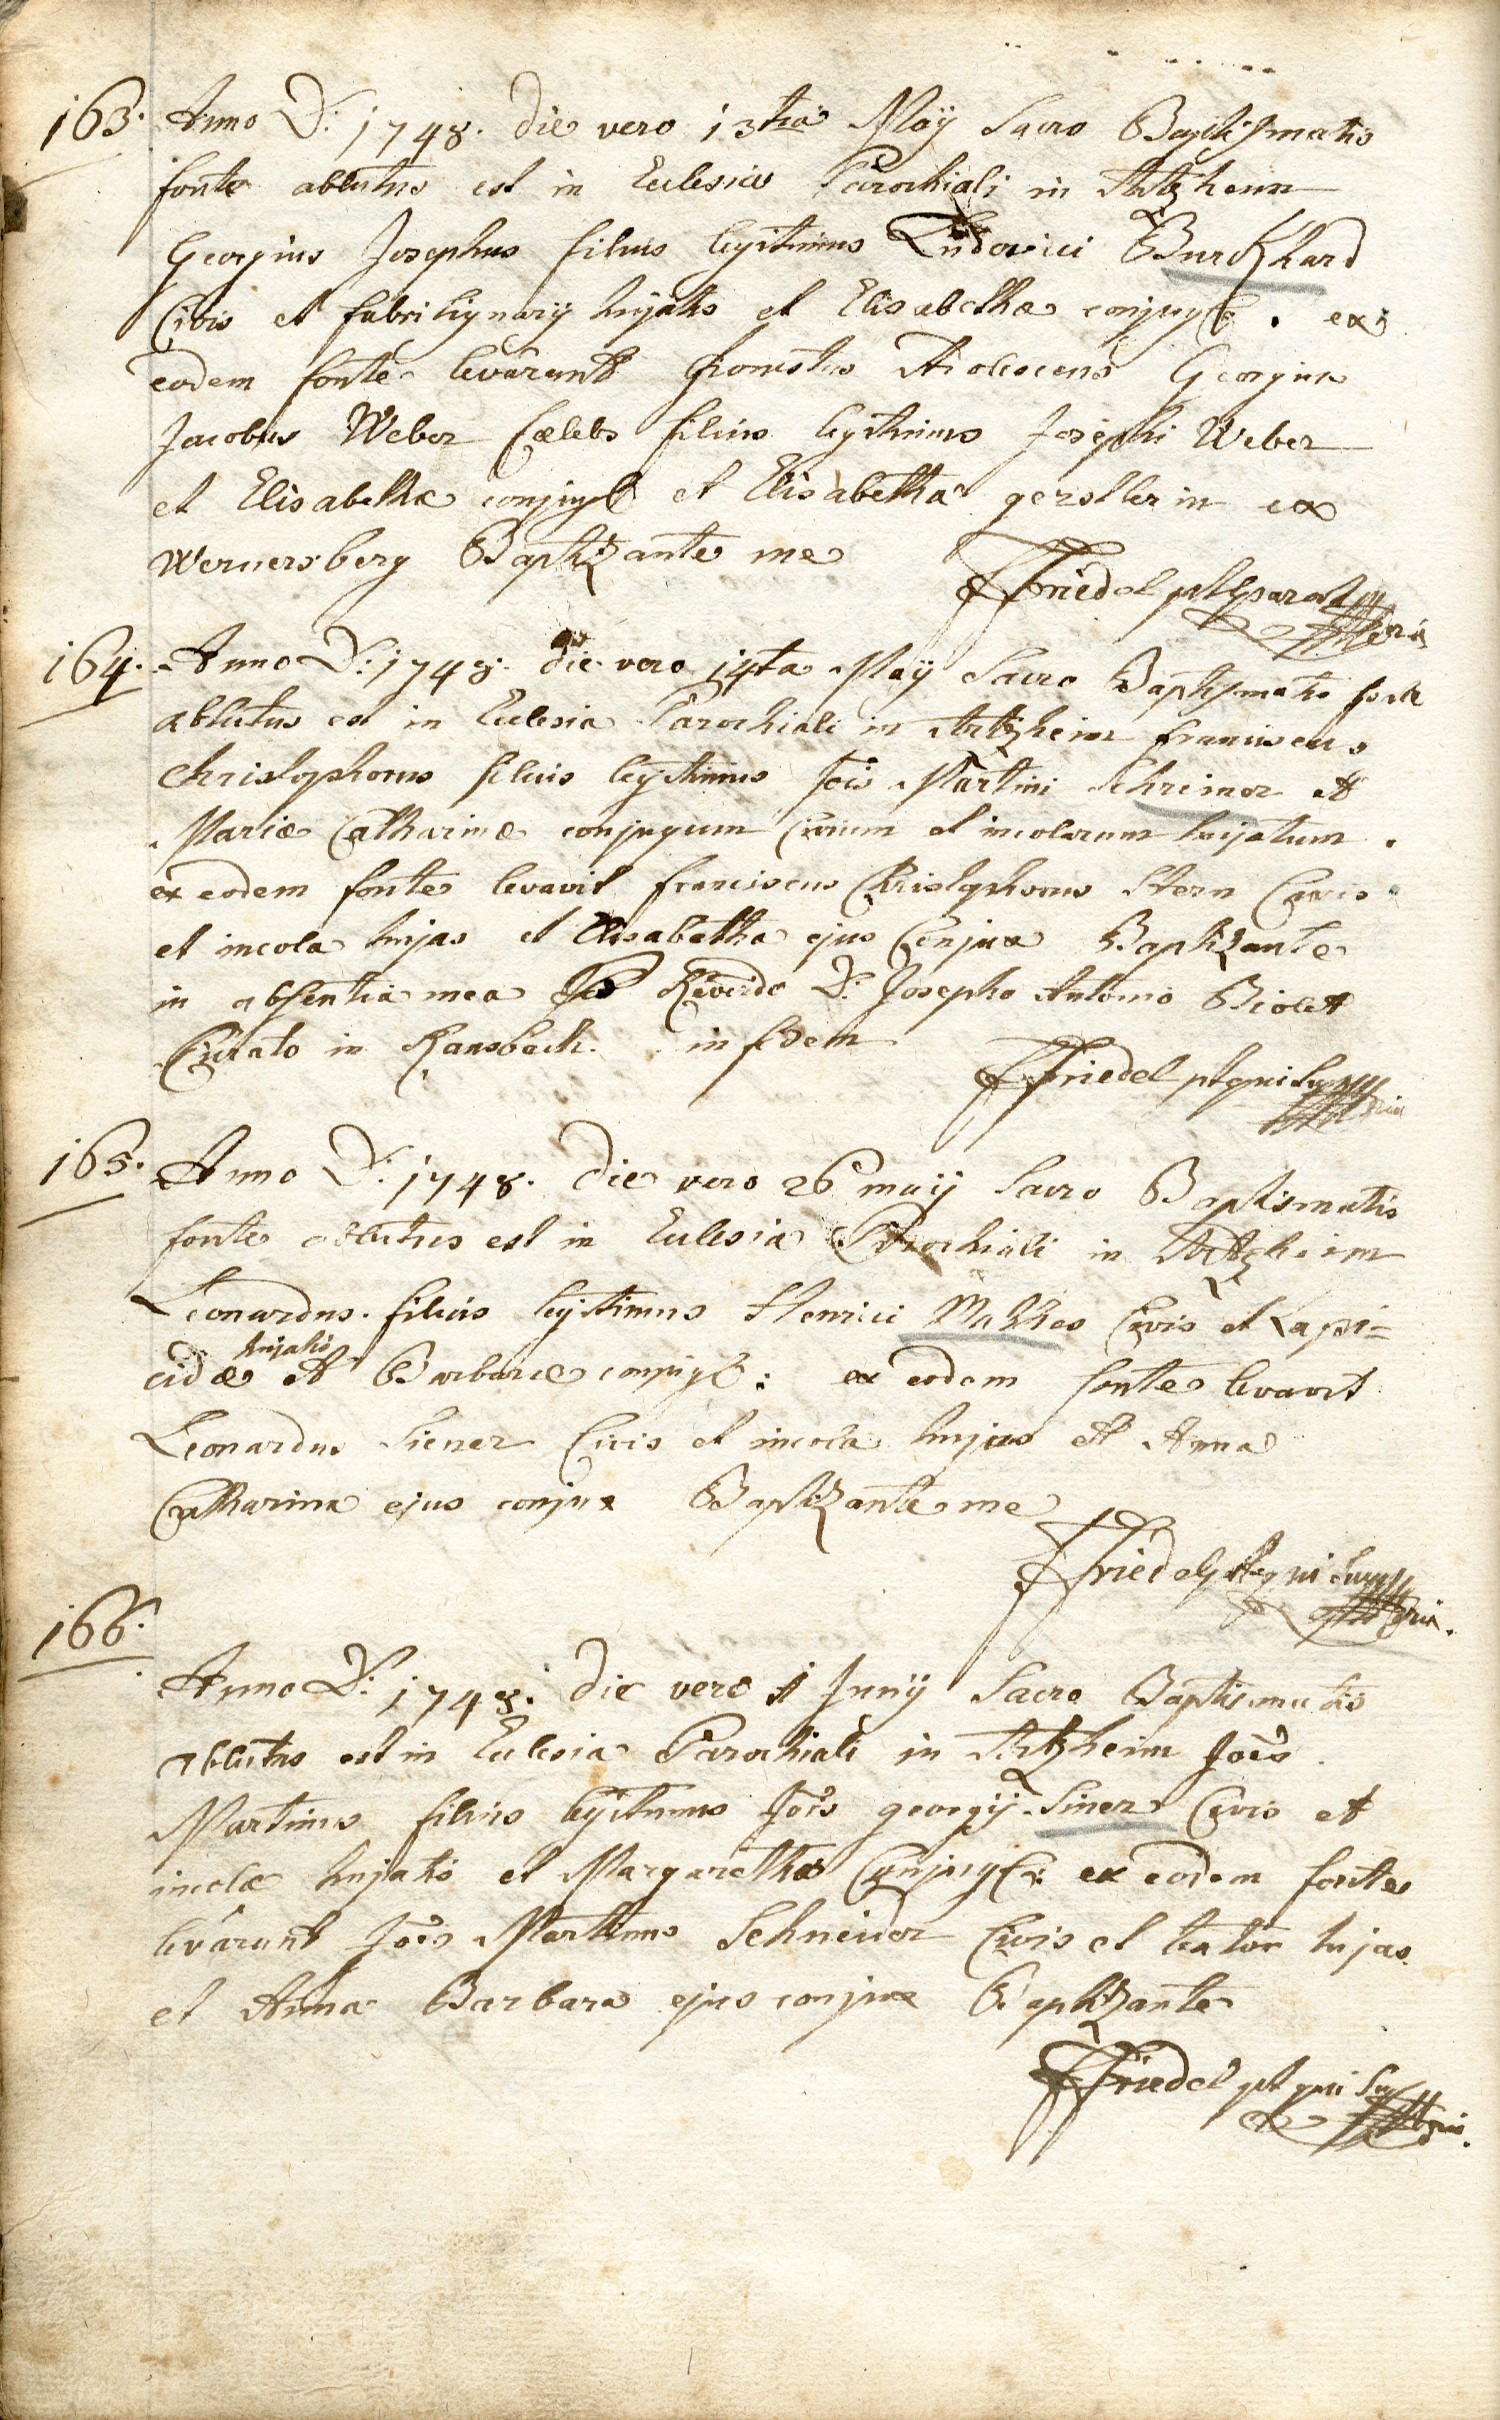 163. Anno D: 1748. die vero 13tia Maÿ Sacro Baptismatis
fonte ablutus est in Eclesia Parochiali in Artzheim
Georgius Josephus filius legitimus Ludovici Burckhard
Civis et fabri lignarÿ hujatis et Elisabethæ conjugū. ex
eodem fonte levârunt honestus Adolescens Georgius
Jacobus Weber Cælebs filius legitimus Josephi Weber
et Elisabethæ conjugū et Elisabetha gerstlerin ex
Wernersberg Baptizante me
FFriedel
164. Anno D: 1748. die vero 14ta Maÿ Sacro Baptismatis fonte
ablutus est in Eclesia Parochiali in Artzheim franciscus
Christophorus filius legitimus Jois Martini Schreiner et
Mariæ Catharinæ conjugum Civium et incolarum hujatum.
ex eodem fonte levavit franciscus Christophorus Stern Civis
et incola hujas et Elisabetha ejus Conjux Baptizante
in absentia mea Reverdo D: Josepho Antonio Biolet
Curato in Ransbach. in fidem
FFriedel pt qui supra
165. Anno D: 1748. die vero 26 maÿ Sacro Baptismatis
fonte ablutus est in Eclesia Parochiali in Artzheim
Leonardus filius legitimus Henrici Civis et Lapi=
hujatis
cidæ et Barbaræ conjugū: ex eodem fonte levavit
Leonardus Siener Civis et incola hujas et Anna
Catharina ejus conjux Baptizante me
FFriedel pt qui supra
166. Anno D: 1748. die vero 1 Junÿ Sacro Baptismatis
ablutus est in Eclesia Parochiali in Artzheim Joes
Martinus filius legitimus Jois georgÿ Siner Civis et
incolæ hujatis et Margarethæ Conjugū: ex eodem fonte
levârunt Joes Martinus Schneider Civis et textor hujas.
et Anna Barbara ejus conjux Baptizante
FFriedel pt qui supra